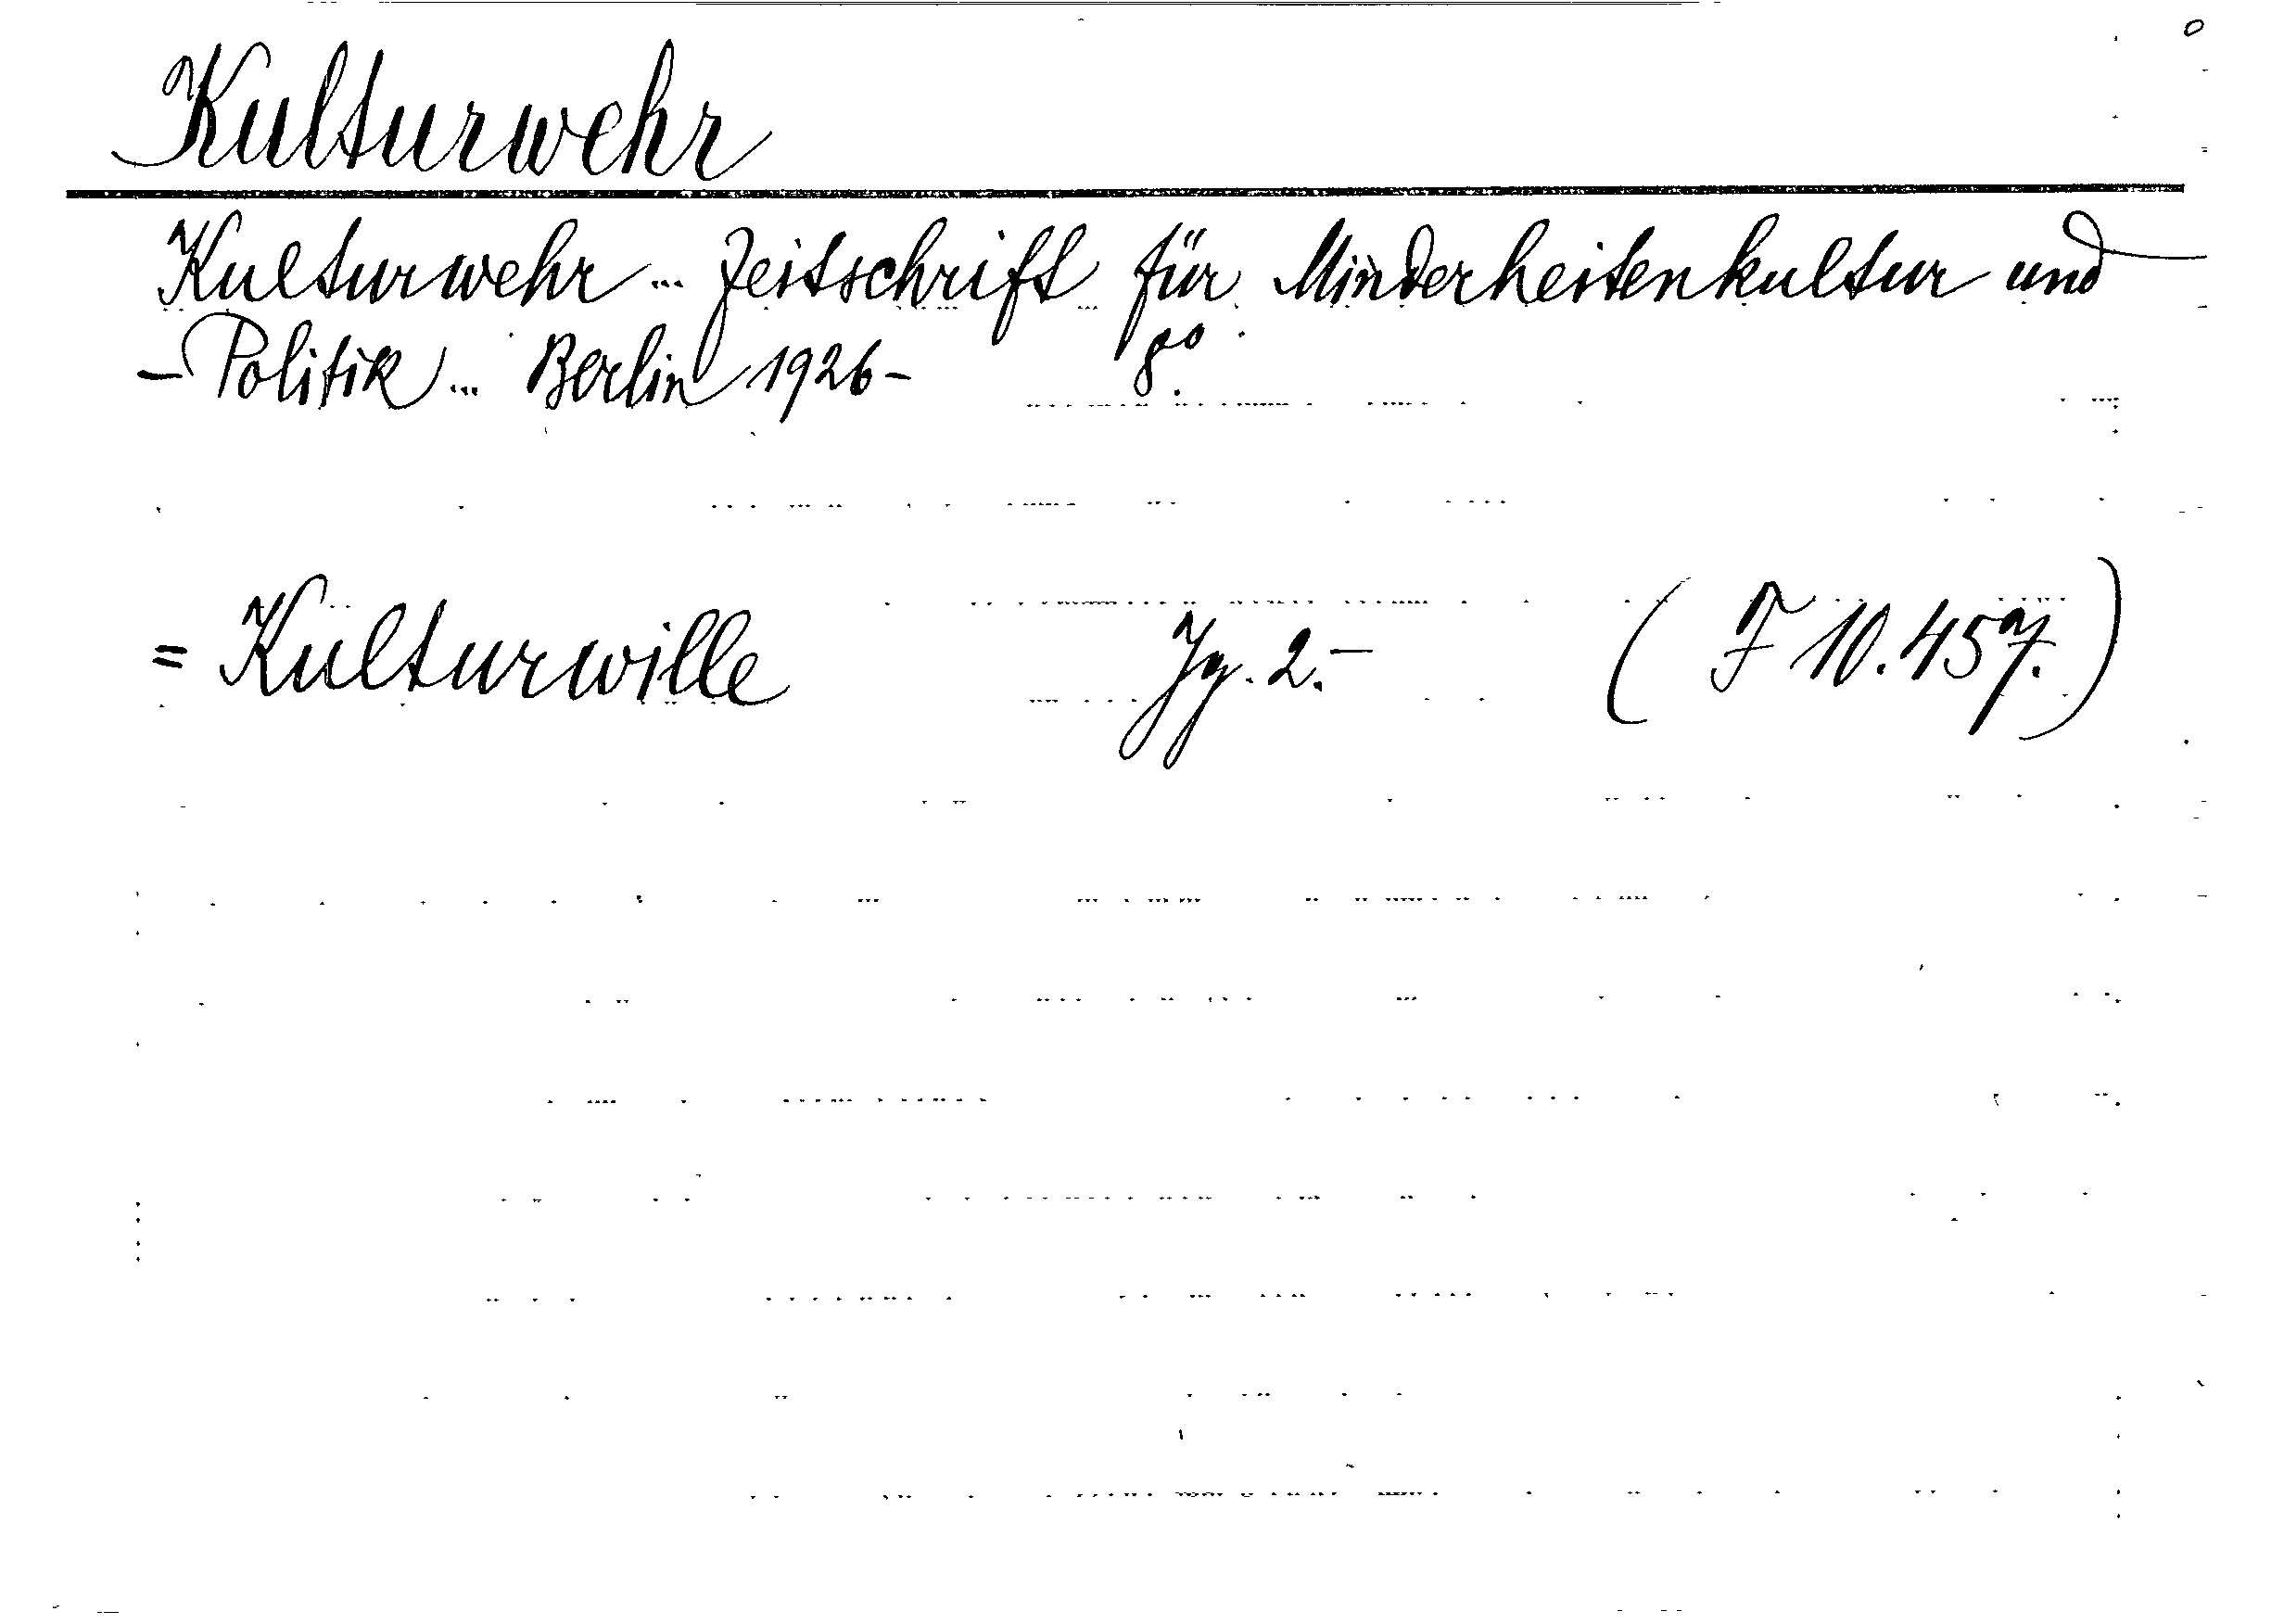 Kulturwehr
Kulturwehr ... Zeitschrift für Minderheitenkultur und
-Politik ... Berlin 1926- 8°.
= Kulturwille Jg. 2.- ( F 10.457. )